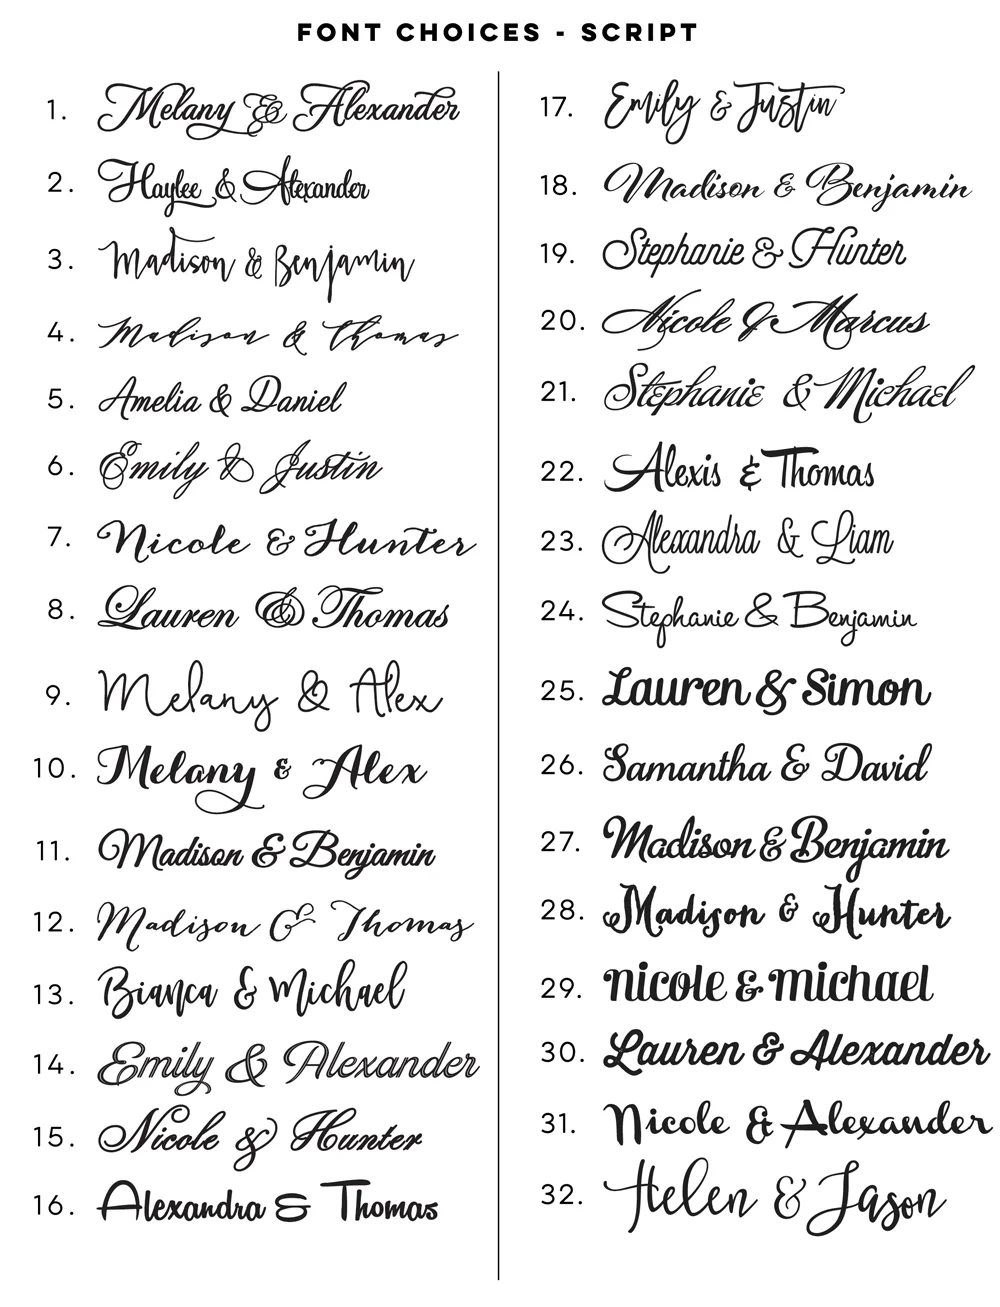 FONT CHOICES - SCRIPT
1. Melany & Alexander
2. Haylee & Alexander
3. Madison & Benjamin
4. Madison & Thomas
5. Amelia & Daniel
6. Emily & Justin
7. Nicole & Hunter
8. Lauren & Thomas
9. Melany & Alex
10. Melany & Alex
11. Madison & Benjamin
12. Madison & Thomas
13. Bianca & Michael
14. Emily & Alexander
15. Nicole & Hunter
16. Alexandra & Thomas
17. Emily & Justin
18. Madison & Benjamin
19. Stephanie & Hunter
20. Nicole & Marcus
21. Stephanie & Michael
22. Alexis & Thomas
23. Alexandra & Liam
24. Stephanie & Benjamin
25. Lauren & Simon
26. Samantha & David
27. Madison & Benjamin
28. Madison & Hunter
29. Nicole & Michael
30. Lauren & Alexander
31. Nicole & Alexander
32. Helen & Jason